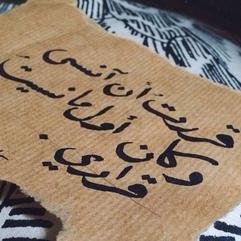 قررت أن أنسى
وكان أول ما نسيت
قراري.